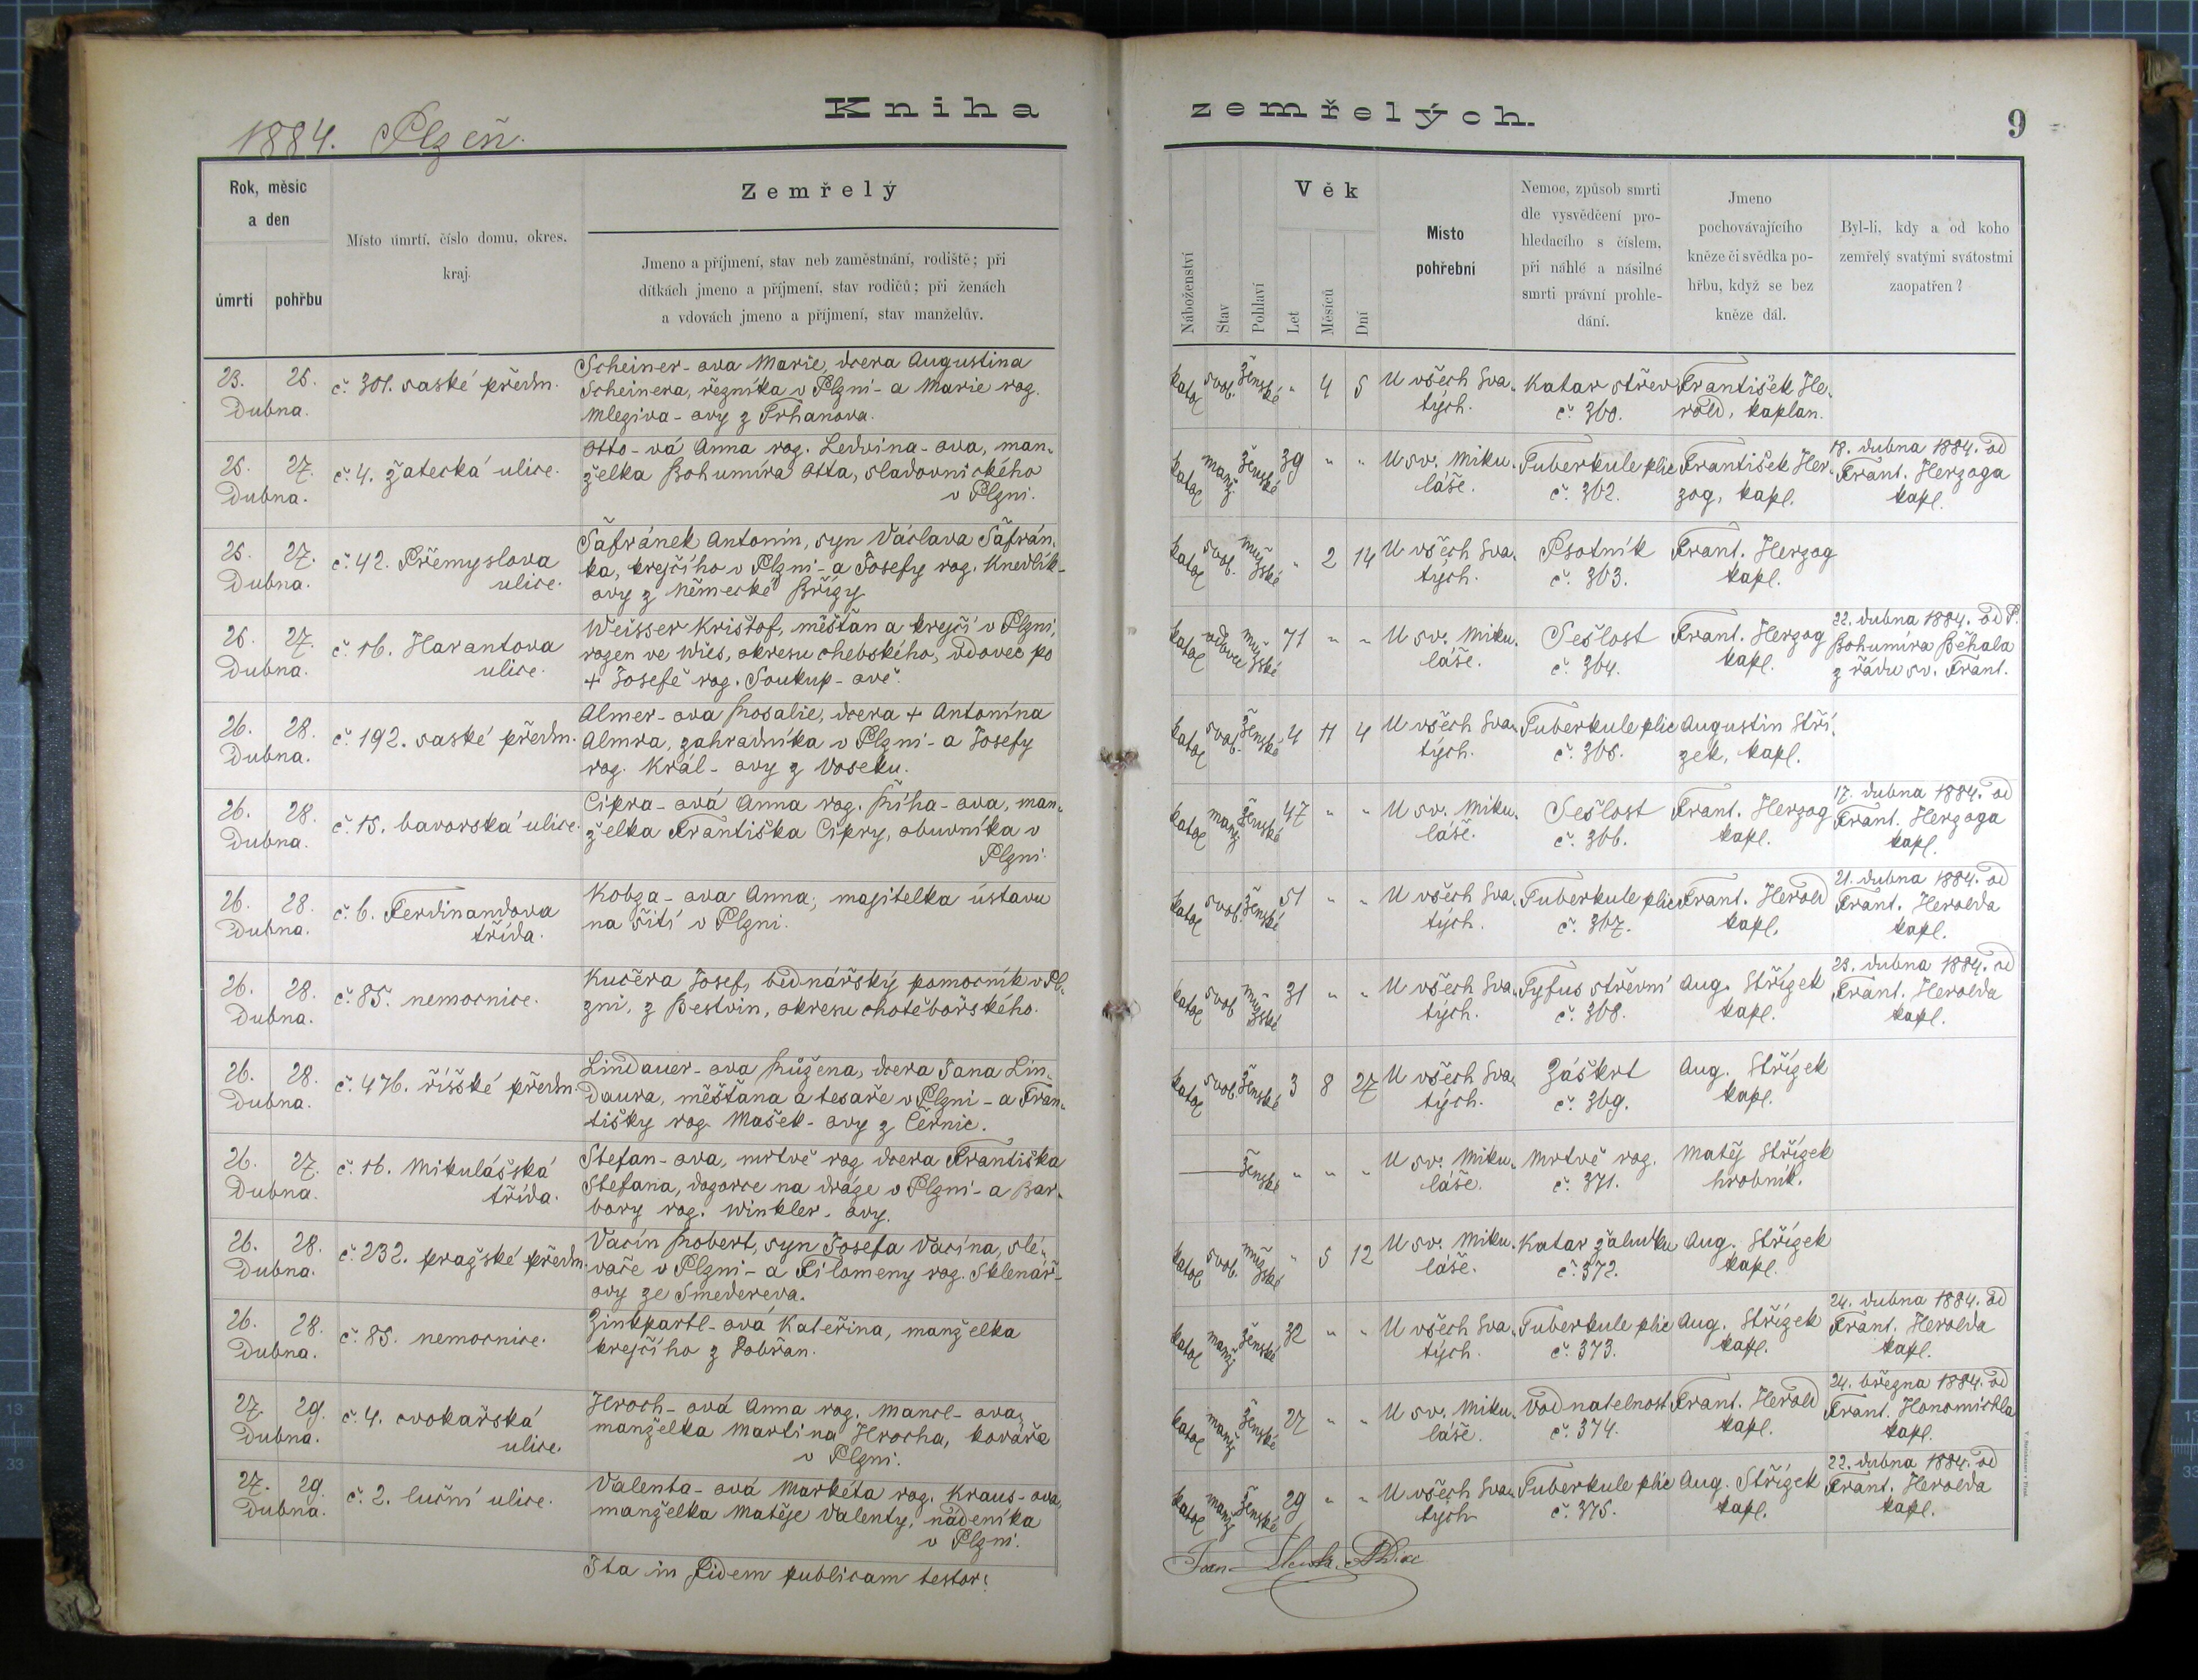 Kniha zemřelých.
9
1884. Plzeň.
Rok, měsíc
a den
úmrtí
pohřbu
Místo úmrtí, číslo domu, okres,
kraj.
Zemřelý
Jmeno a příjmení, stav neb zaměstnání, rodiště; při
dítkách jmeno a příjmení, stav rodičů; při ženách
a vdovách jmeno a příjmení, stav manželův.
Náboženství
Stav
Pohlaví
Věk
Let
Měsíců
Dní
Místo
pohřební
Nemoc, způsob smrti
dle vysvědčení pro-
hledacího s číslem,
při náhlé a násilné
smrti právní prohle-
dání.
Jmeno
pochovávajícího
kněze či svědka po-
hřbu, když se bez
kněze dál.
Byl-li, kdy a od koho
zemřelý svatými svátostmi
zaopatřen?
23. 25.
Dubna.
č. 301. saské předm.
Scheiner-ova Marie, dcera Augustina
Scheinera, řezníka v Plzni - a Marie roz.
Mleziva-ovy z Trhanova.
katol svob. ženské " 4 5
U všech Sva-
tých.
Katar střev
č. 360.
František He-
rold, kaplan.
25. 27.
Dubna.
č. 4. žatecká ulice.
Otto-vá Anna roz. Ledvina-ova, man-
želka Bohumíra Otta, sladovnického
v Plzni.
katol manž. ženské 39 " "
U sv. Miku-
láše.
Tuberkule plic
č. 362.
František Her-
zog, kapl.
18. dubna 1884. od
Frant. Herzoga
kapl.
25. 27.
Dubna.
č. 42. Přemyslova
ulice.
Šafránek Antonín, syn Václava Šafrán-
ka, krejčího v Plzni - a Josefy roz. Knedlík-
ovy z Německé Břízy
katol svob. mužské " 2 14
U všech Sva-
tých.
Psotník
č. 363.
Frant. Herzog
kapl.
25. 27.
Dubna.
č. 16. Harantova
ulice.
Weisser Krištof, měšťan a krejčí v Plzni,
rozen ve Wies, okresu chebského, vdovec po
+ Josefě roz. Soukup-ově.
katol vdovec mužské 71 " "
U sv. Miku-
láše.
Sešlost
č. 364.
Frant. Herzog
kapl.
22. dubna 1884. od P.
Bohumíra Běhala
z řádu sv. Frant.
26. 28.
Dubna.
č. 192. saské předm.
Almer-ova Rosalie, dcera + Antonína
Almra, zahradníka v Plzni - a Josefy
roz. Král-ovy z Voseku.
katol svob. ženské 4 11 4
U všech Sva-
tých.
Tuberkule plic
č. 365.
Augustin Stří-
zek, kapl.
26. 28.
Dubna.
č. 15. bavorská ulice.
Cipra-ová Anna roz. Říha-ova, man-
želka Františka Cipry, obuvníka v
Plzni.
katol manž ženské 47 " "
U sv. Miku-
láše.
Sešlost
č. 366.
Frant. Herzog
kapl.
17. dubna 1884. od
Frant. Herzoga
kapl.
26. 28.
Dubna.
č. 6. Ferdinandova
třída.
Kobza-ova Anna, majitelka ústavu
na šití v Plzni.
katol svob. ženské 51 " "
U všech Sva-
tých.
Tuberkule plic
č. 367.
Frant. Herold
kapl.
21. dubna 1884. od
Frant. Herolda
kapl.
26. 28.
Dubna.
č. 85. nemocnice.
Kučera Josef, bednářský pomocník v Pl-
zni, z Bestvin, okresu chotěbořského.
katol svob mužské 31 " "
U všech Sva-
tých.
Tyfus střevní
č. 368.
Aug. Střízek
kapl.
23. dubna 1884. od
Frant. Herolda
kapl.
26. 28.
Dubna.
č. 476. říšské předm.
Lindauer-ova Růžena, dcera Jana Lin-
daura, měšťana a tesaře v Plzni - a Fran-
tišky roz. Mašek-ovy z Černic.
katol svob. ženské 3 8 27
U všech Sva-
tých.
Záškrt
č. 369.
Aug. Střízek
kapl.
26. 27.
Dubna.
č. 16. Mikulášská
třída.
Stefan-ova, mrtvě roz dcera Františka
Stefana, dozorce na dráze v Plzni - a Bar-
bory roz. Winkler-ovy.
ženské " " "
U sv. Miku-
láše.
Mrtvě roz.
č. 371.
Matěj Střízek
hrobník.
26. 28.
Dubna.
č. 232. pražské předm.
Vacín Robert, syn Josefa Vacína, slé-
vače v Plzni - a Filomeny roz. Sklenář-
ovy ze Smedereva.
katol svob. mužské " 5 12
U sv. Miku-
láše.
Katar žaludku
č. 372.
Aug. Střízek
kapl.
26. 28.
Dubna.
č. 85. nemocnice.
Zinkpartl-ová Kateřina, manželka
krejčího z Dobřan.
katol manž ženské 32 " "
U všech Sva-
tých.
Tuberkule plic
č. 373.
Aug. Střízek
kapl.
24. dubna 1884. od
Frant. Herolda
kapl.
27. 29.
Dubna.
č. 4. cvokařská
ulice.
Hroch-ová Anna roz. Mancl-ova,
manželka Martina Hrocha, kováře
v Plzni.
katol manž ženské 27 " "
U sv. Miku-
láše.
Vodnatelnost
č. 374.
Frant. Herold
kapl.
24. března 1884. od
Frant. Honomichla
kapl.
27. 29.
Dubna.
č. 2. luční ulice.
Valenta-ová Markéta roz. Kraus-ova,
manželka Matěje Valenty, nádeníka
v Plzni.
katol manž ženské 29 " "
U všech Sva-
tých
Tuberkule plic
č. 375.
Aug. Střízek
kapl.
22. dubna 1884. od
Frant. Herolda
kapl.
Ita in fidem publicam testor: